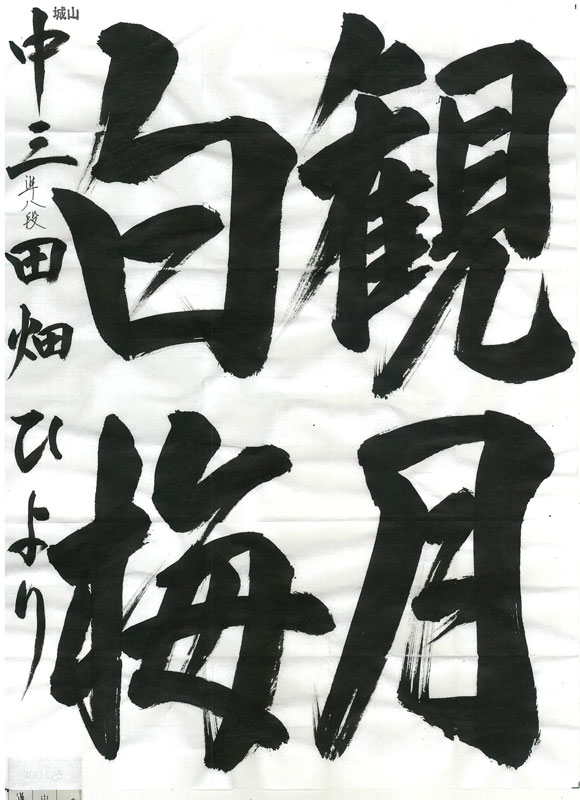 観月
白梅
城山
中三 準八段 田畑ひより